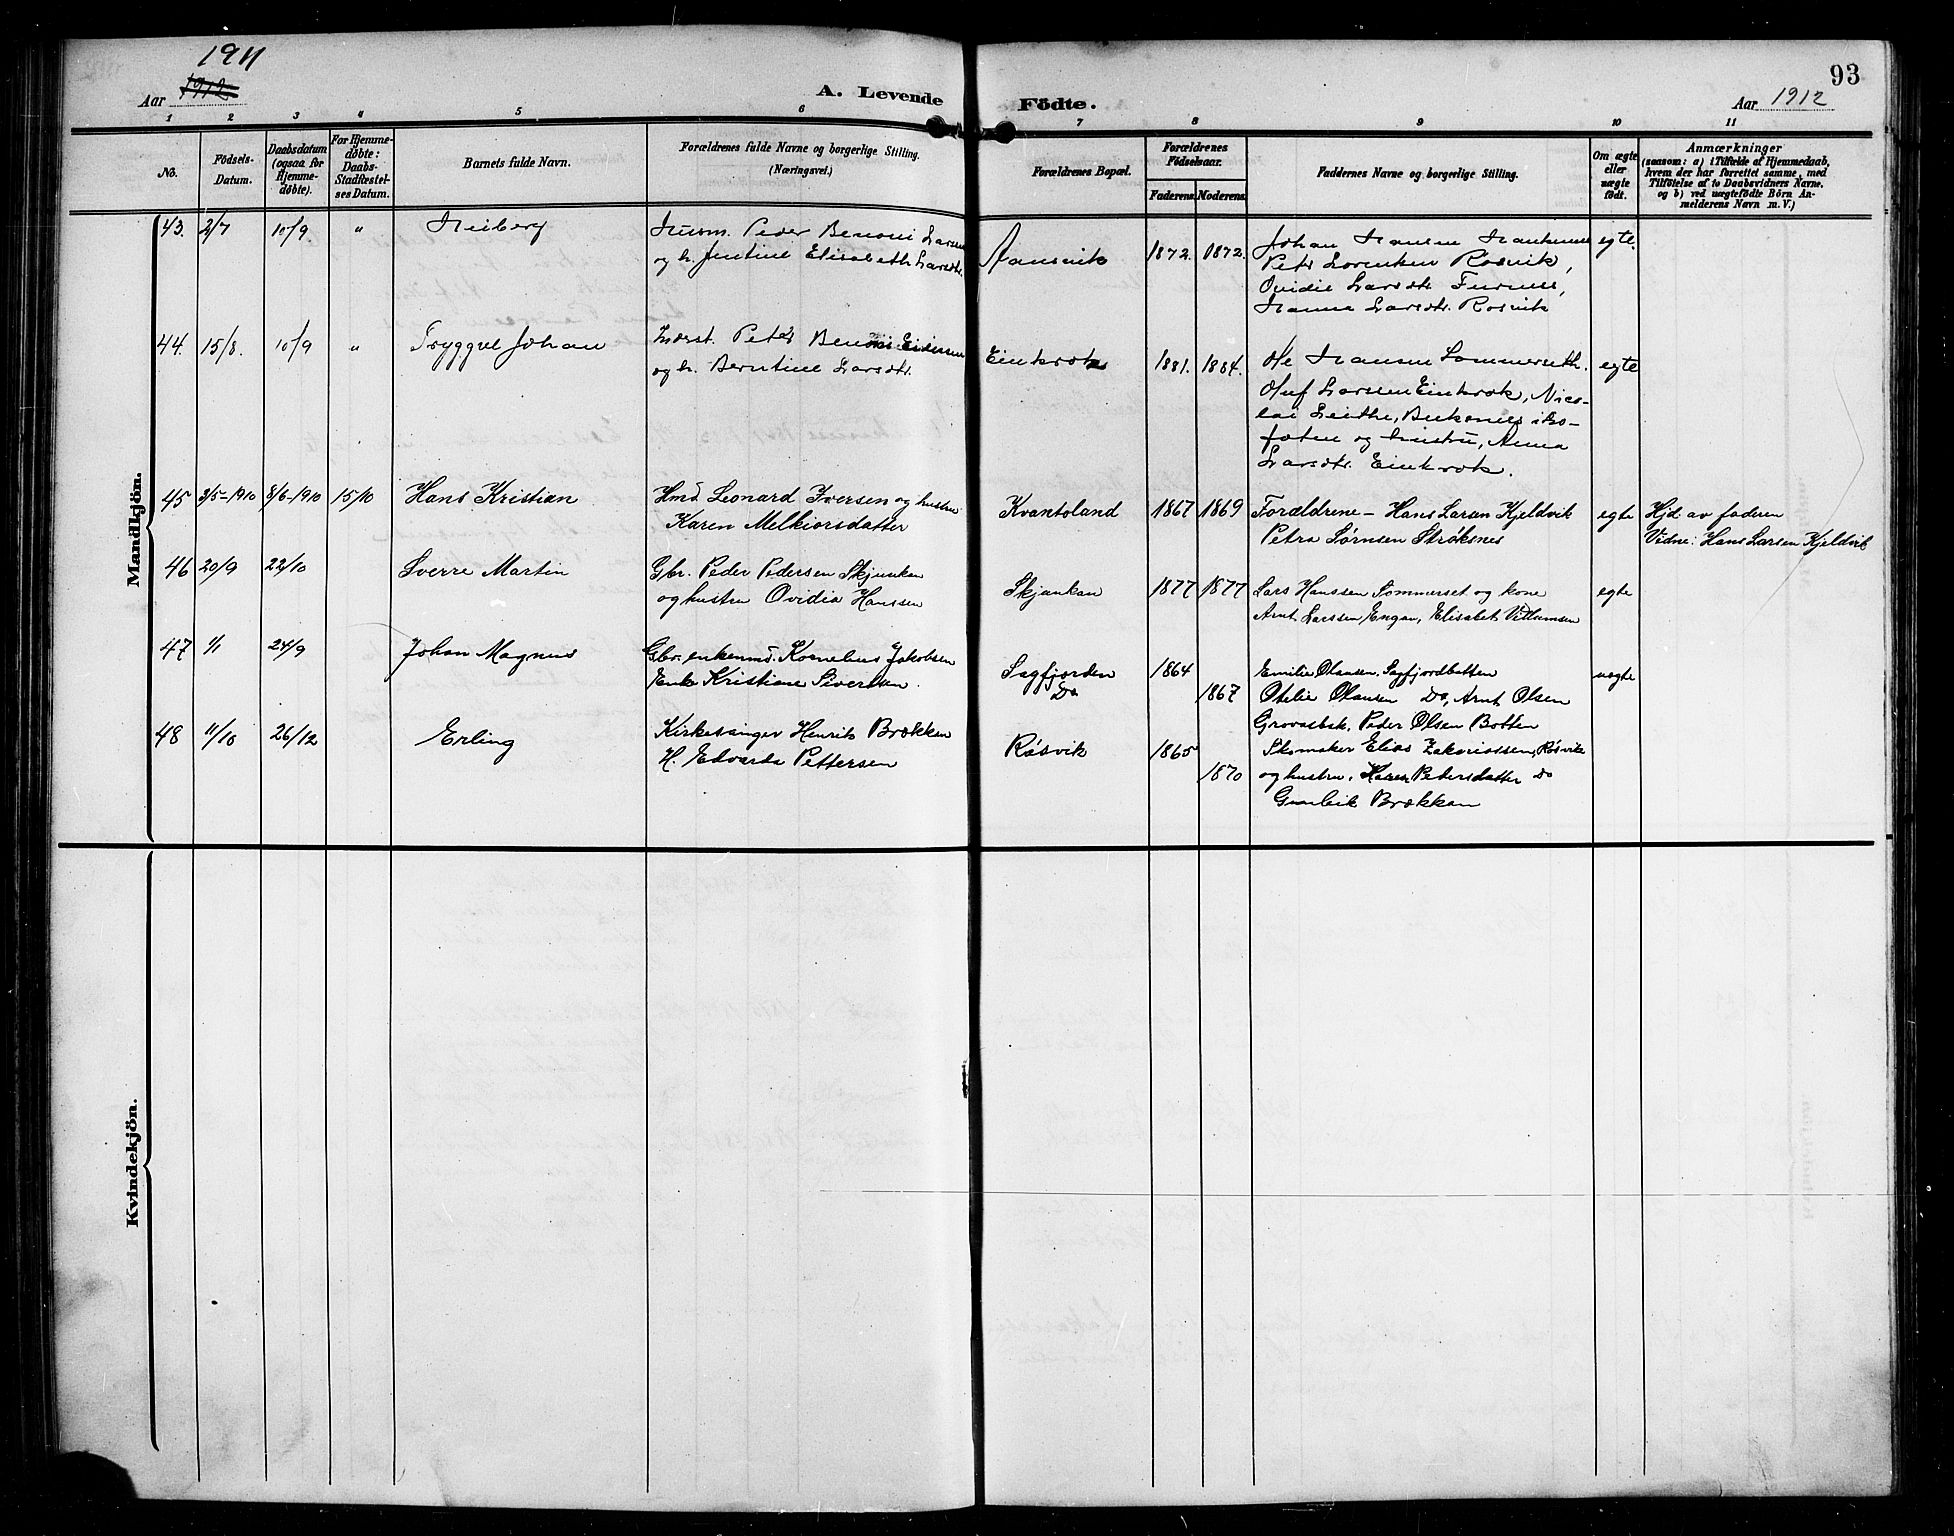 1911
Aar 1912
A. Levende Födte.
93
Aar 1912
1 2 3 4 5 6 7 8 9 10 11
No.
Födsels-
Datum.
Daabsdatum
(ogsaa for
Hjemme-
döbte).
For Hjemme-
döbte:
Daabs-
Stadfæstel-
ses Datum.
Barnets fulde Navn.
Forældrenes fulde Navne og borgerlige Stilling.
(Næringsvei.)
Forældrenes Bopæl.
Forældrenes
Födselsaar.
Faderens. Moderens.
Faddernes Navne og borgerlige Stilling.
Om ægte
eller
uægte
født.
Anmærkninger
(saasom: a) i Tilfælde af Hjemmedaab,
hvem der har forrettet samme, med
Tilföielse af to Daabsvidners Navne,
og b) ved uægtefödte Börn An-
melderens Navn m. V.)
Mandkjön.
43. 2/7 10/9 "
Peder Benoni Larsen
og h. Jentine Elisabeth Larsdtr.
1872. 1872.
Johan Hansen
Petr Lorentsen Rosvik,
Ovidie Larsdtr. Furnes,
Hanna Larsdtr. Rosvik
egte.
44. 15/8. 10/9 " Tryggve Johan
Inderst. Peter Benoni
og h. Berntine Larsdtr.
Einkrok 1881. 1884.
Ole Hansen Sommerseth.
Oluf Larssen Einkrok, Nico-
lai
foten og hustru, Anna
Larsdtr. Einkrok.
egte
45 3/5-1910 8/6-1910 15/10 Hans Kristian
Hmd. Leonard Iversen og hustru
Karen Melkiorsdatter
Kvantoland 1867 1869
Forældrene - Hans Larsen Kjeldvik
Petra Sørnsen Strøksnes
egte
Hjd av faderen
Vidne: Hans Larsen Kjeldvik
46 20/9 22/10 Sverre Martin
Gbr. Peder Pedersen Skjunkan
og hustru Ovidia Hanssen
Skjunkan 1877 1877
Lars Hanssen Sommerset og kone
Arnt Larssen Engan, Elisabet
egte
47 1/1 24/9 Johan Magnus
Gbr. enkemd. Kornelius Jakobsen
Enke Kristiane Sivertsen.
Sagfjorden 1864
Do 1867
Emilie Olausen, Sagfjordbotten
Otelie Olausen Do, Arnt Olsen
Grovasbak, Peder Olsen Botten
uegte
48 11/10 26/12 Erling
Kirkesanger Henrik Brækkan
H. Edvarda Pettersen
Røsvik 1865
1870
Skomaker Elias Zakariassen, Røsvik
og hustru, Karen Petersdatter Do
Gunleik Brækkan
Kvindekjön.